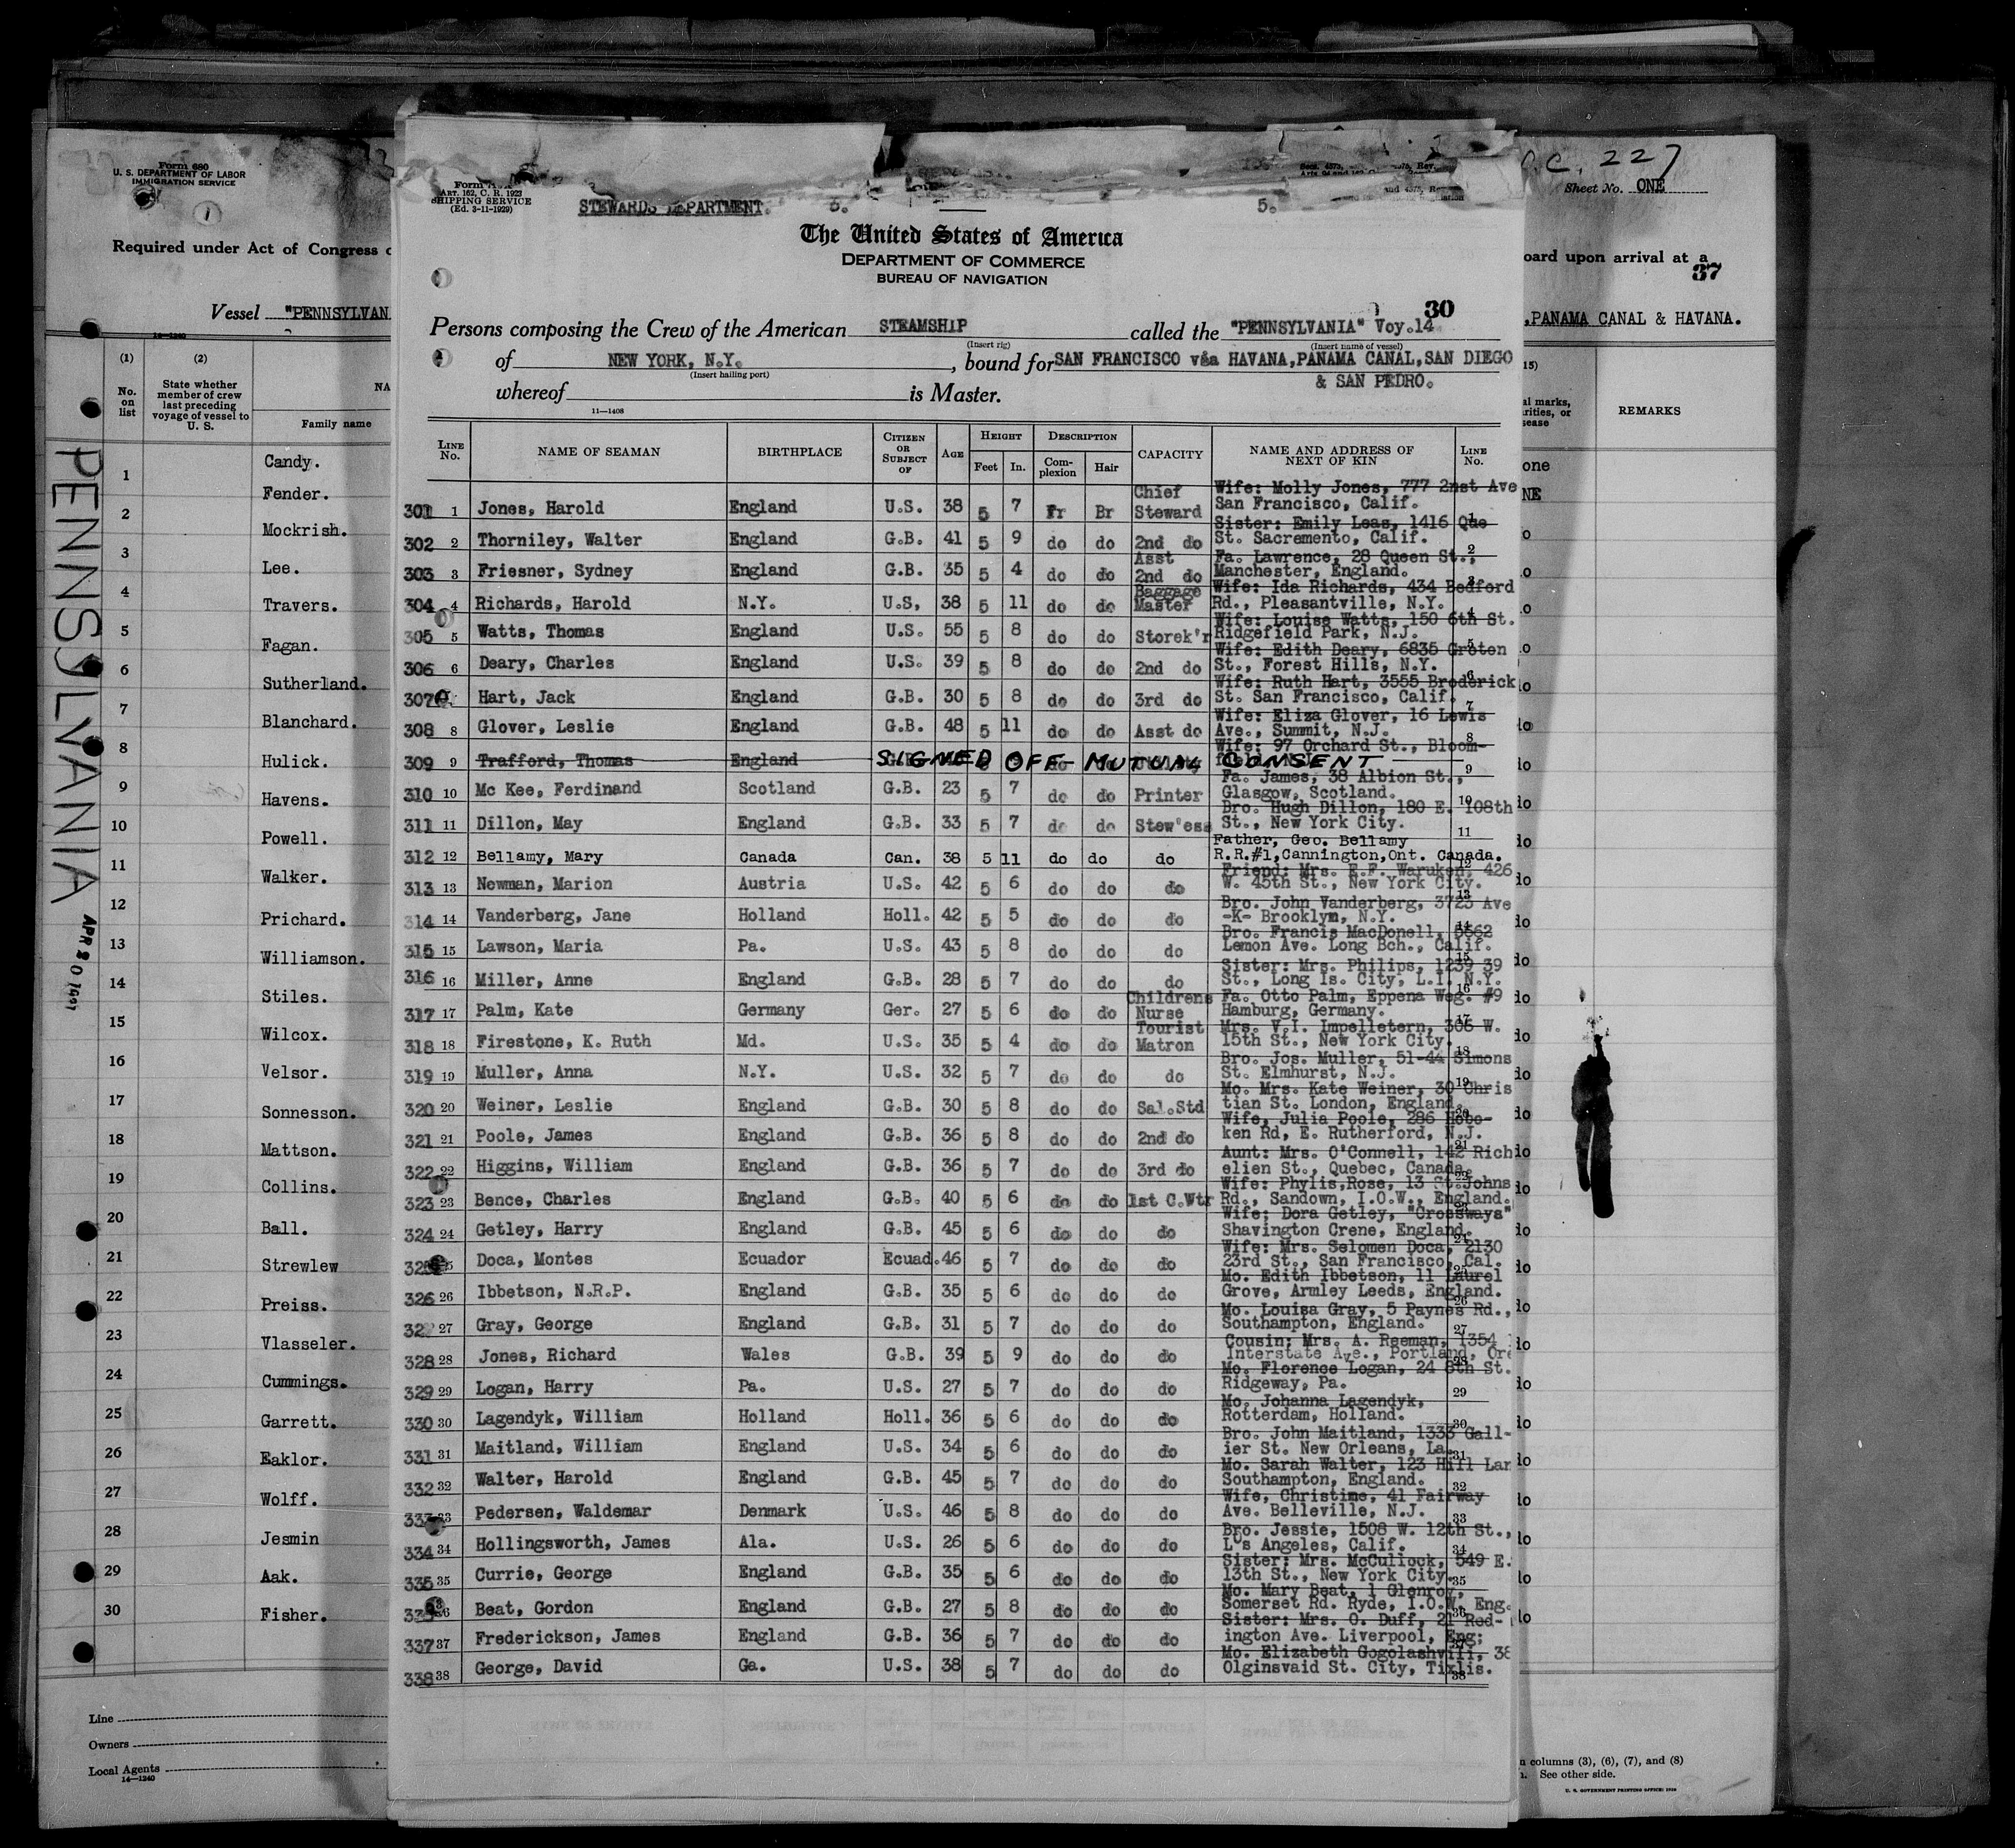 Form 680
U. S. DEPARTMENT OF LABOR
IMMIGRATION SERVICE
1
Required under Act of Congress
Vessel "PENNSYLVAN
14—1240
(1) (2)
No. on list
State whether member of crew last preceding voyage of vessel to U. S.
NA
Family name
1 Candy.
2 Fender.
3 Mockrish.
4 Lee.
5 Travers.
6 Fagan.
7 Sutherland.
8 Blanchard.
9 Hulick.
10 Havens.
11 Powell.
12 Walker.
13 Prichard.
14 Williamson.
15 Stiles.
16 Wilcox.
17 Velsor.
18 Sonnesson.
19 Mattson.
20 Collins.
21 Ball.
22 Strewlew
23 Preiss.
24 Vlasseler.
25 Cummings.
26 Garrett.
27 Eaklor.
28 Wolff.
29 Jesmin
30 Aak.
Fisher.
Line
Owners
Local Agents
14—1240
PENNSYLVANIA
ART. 162, C. R. 1923
SHIPPING SERVICE
(Ed. 3-11-1929)
STEWARDS DEPARTMENT. 5. 5.
The United States of America
DEPARTMENT OF COMMERCE
BUREAU OF NAVIGATION
30
Persons composing the Crew of the American STEAMSHIP called the "PENNSYLVANIA" Voy.14
(Insert rig) (Insert name of vessel)
of NEW YORK, N.Y. , bound for SAN FRANCISCO via HAVANA,PANAMA CANAL,SAN DIEGO
(Insert hailing port)
& SAN PEDRO.
whereof is Master.
11—1408
LINE No. NAME OF SEAMAN BIRTHPLACE CITIZEN OR SUBJECT OF AGE HEIGHT Feet In. DESCRIPTION Complexion Hair CAPACITY NAME AND ADDRESS OF NEXT OF KIN LINE No.
301 1 Jones, Harold England U.S. 38 5 7 Fr Br Chief Steward Wife: Molly Jones, 777 2nst Ave San Francisco, Calif. 1
302 2 Thorniley, Walter England G.B. 41 5 9 do do 2nd do Sister: Emily Leas, 1416 Que St. Sacremento, Calif. 2
303 3 Friesner, Sydney England G.B. 35 5 4 do do Asst 2nd do Fa. Lawrence, 28 Queen St., Manchester, England. 3
304 4 Richards, Harold N.Y. U.S, 38 5 11 do do Baggage Master Wife: Ida Richards, 434 Bedford Rd., Pleasantville, N.Y. 4
305 5 Watts, Thomas England U.S. 55 5 8 do do Storek'r Wife: Louise Watts, 150 6th St. Ridgefield Park, N.J. 5
306 6 Deary, Charles England U.S. 39 5 8 do do 2nd do Wife: Edith Deary, 6835 Groten St., Forest Hills, N.Y. 6
307 Hart, Jack England G.B. 30 5 8 do do 3rd do Wife: Ruth Hart, 3555 Broderick St. San Francisco, Calif. 7
308 8 Glover, Leslie England G.B. 48 5 11 do do Asst do Wife: Eliza Glover, 16 Lewis Ave., Summit, N.J. 8
309 9 Trafford, Thomas England SIGNED OFF MUTUAL CONSENT Wife: 97 Orchard St., Bloom- 9
310 10 Mc Kee, Ferdinand Scotland G.B. 23 5 7 do do Printer Fa. James, 38 Albion St., Glasgow, Scotland. 10
311 11 Dillon, May England G.B. 33 5 7 do do Stew'ess Bro. Hugh Dillon, 180 E. 108th St., New York City. 11
312 12 Bellamy, Mary Canada Can. 38 5 11 do do do Father, Geo. Bellamy R.R.#1,Cannington,Ont. Canada. 12
313 13 Newman, Marion Austria U.S. 42 5 6 do do do Friend: Mrs. E.F. Waruken, 426 W. 45th St., New York City. 13
314 14 Vanderberg, Jane Holland Holl. 42 5 5 do do do Bro. John Vanderberg, 3723 Ave -K- Brooklym, N.Y. 14
315 15 Lawson, Maria Pa. U.S. 43 5 8 do do do Bro. Francis MacDonell, 6662 Lemon Ave. Long Bch., Calif. 15
316 16 Miller, Anne England G.B. 28 5 7 do do do Sister: Mrs. Philips, 1239 39 St., Long Is. City, L.I. N.Y. 16
317 17 Palm, Kate Germany Ger. 27 5 6 do do Childrens Nurse Fa. Otto Palm, Eppena Weg. #9 Hamburg, Germany. 17
318 18 Firestone, K. Ruth Md. U.S. 35 5 4 do do Tourist Matron Mrs. V.I. Impelletern, 306 W. 15th St., New York City. 18
319 19 Muller, Anna N.Y. U.S. 32 5 7 do do do Bro. Jos. Muller, 51-44 Simons St. Elmhurst, N.J. 19
320 20 Weiner, Leslie England G.B. 30 5 8 do do Sal.Std Mo. Mrs. Kate Weiner, 30 Chris tian St. London, England. 20
321 21 Poole, James England G.B. 36 5 8 do do 2nd do Wife, Julia Poole, 286 Hobo- ken Rd, E. Rutherford, N.J. 21
322 22 Higgins, William England G.B. 36 5 7 do do 3rd do Aunt: Mrs. O'Connell, 142 Rich elien St., Quebec, Canada. 22
323 23 Bence, Charles England G.B. 40 5 6 do do 1st C.Wtr Wife: Phylis,Rose, 13 St.Johns Rd., Sandown, I.O.W., England. 23
324 24 Getley, Harry England G.B. 45 5 6 do do do Wife; Dora Getley, "Crossways" Shavington Crene, England. 24
Doca, Montes Ecuador Ecuad. 46 5 7 do do do Wife: Mrs. Selomen Doca, 2130 23rd St., San Francisco, Cal. 25
326 26 Ibbetson, N.R.P. England G.B. 35 5 6 do do do Mo. Edith Ibbetson, 11 Laurel Grove, Armley Leeds, England. 26
27 Gray, George England G.B. 31 5 7 do do do Mo. Louisa Gray, 5 Paynes Rd., Southampton, England. 27
328 28 Jones, Richard Wales G.B. 39 5 9 do do do Cousin; Mrs. A. Reeman, 1354 Interstate Ave., Portland, Ore 28
329 29 Logan, Harry Pa. U.S. 27 5 7 do do do Mo. Florence Logan, 24 8th St. Ridgeway, Pa. 29
330 30 Lagendyk, William Holland Holl. 36 5 6 do do do Mo. Johanna Lagendyk, Rotterdam, Holland. 30
331 31 Maitland, William England U.S. 34 5 6 do do do Bro. John Maitland, 1333 Gall- ier St. New Orleans, La. 31
332 32 Walter, Harold England G.B. 45 5 7 do do do Mo. Sarah Walter, 123 Hill Lan Southampton, England. 32
Pedersen, Waldemar Denmark U.S. 46 5 8 do do do Wife, Christine, 41 Fairway Ave. Belleville, N.J. 33
334 34 Hollingsworth, James Ala. U.S. 26 5 6 do do do Bro. Jessie, 1508 W. 12th St., L's Angeles, Calif. 34
335 35 Currie, George England G.B. 35 5 6 do do do Sister: Mrs. McCullock, 549 E. 13th St., New York City. 35
Beat, Gordon England G.B. 27 5 8 do do do Mo. Mary Beat, 1 Glenroy, Somerset Rd. Ryde, I.O.W. Eng. 36
337 37 Frederickson, James England G.B. 36 5 7 do do do Sister: Mrs. O. Duff, 21 Red- ington Ave. Liverpool, Eng; 37
338 38 George, David Ga. U.S. 38 5 7 do do do Mo. Elizabeth Gogolashvili, 38 Olginsvaid St. City, Tixlis. 38
227
Sheet No. ONE
oard upon arrival at a
37
,PANAMA CANAL & HAVANA.
REMARKS
one
NE
n columns (3), (6), (7), and (8)
See other side.
U. S. GOVERNMENT PRINTING OFFICE